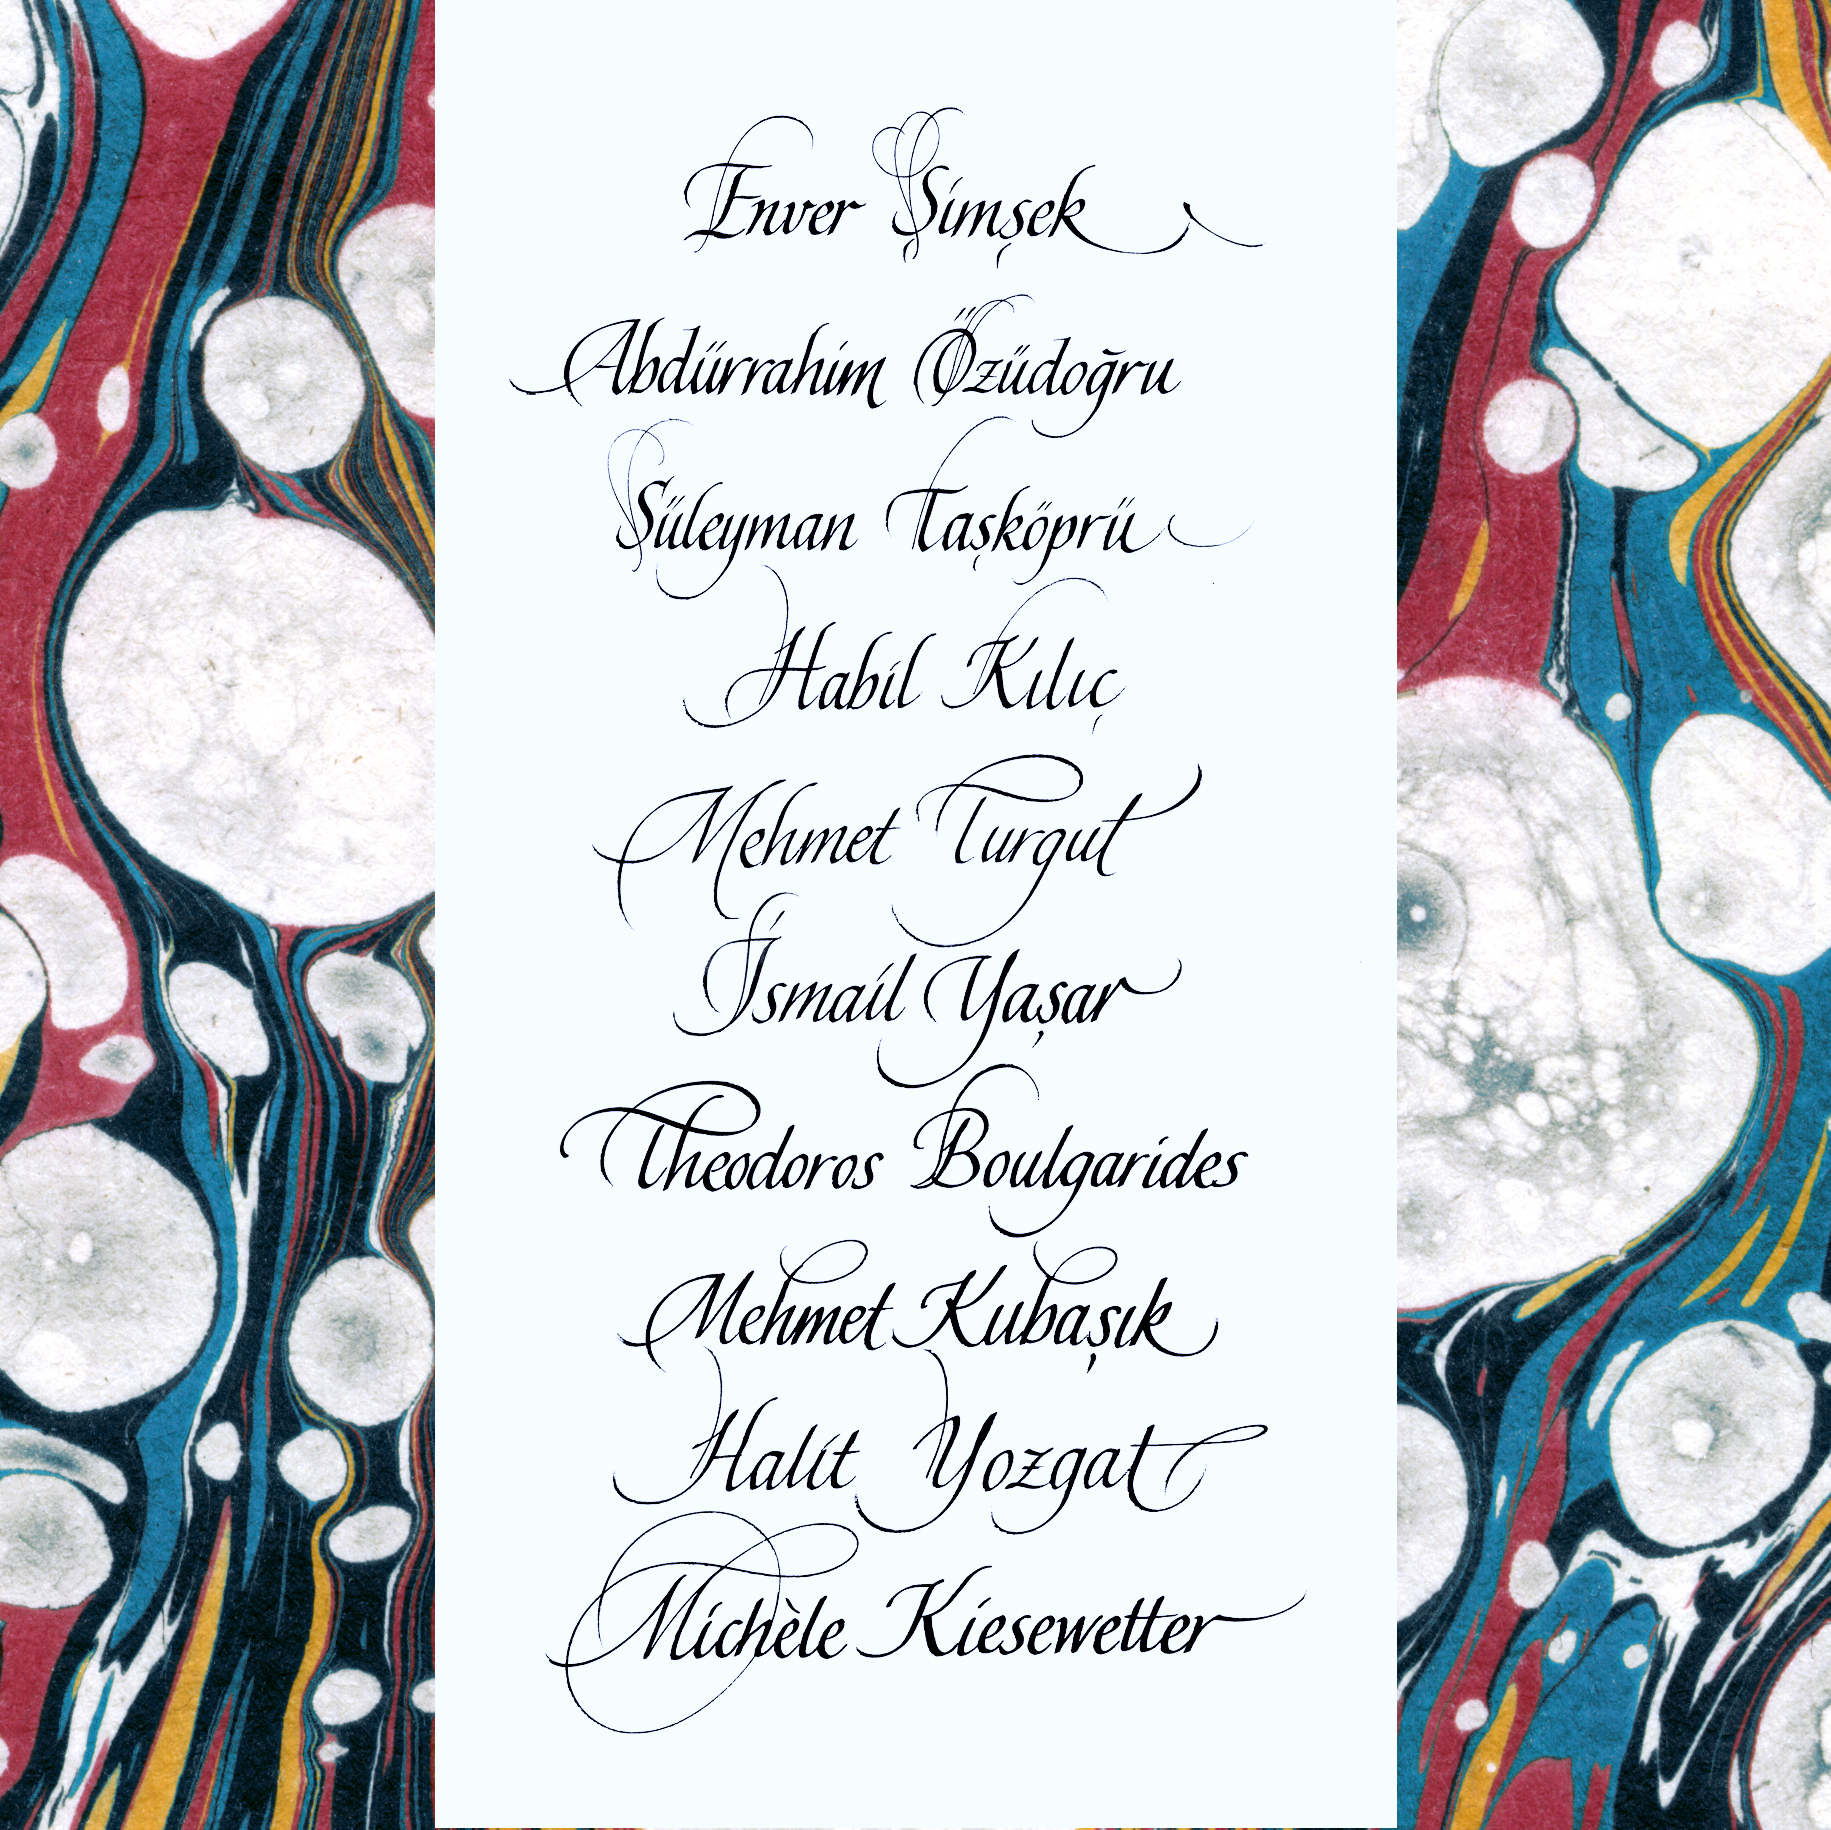 Enver Şimşek
Abdürrahim Özüdoğru
Süleyman Taşköprü
Habil Kılıç
Mehmet Turgut
İsmail Yaşar
Theodoros Boulgarides
Mehmet Kubaşık
Halit Yozgat
Michèle Kiesewetter